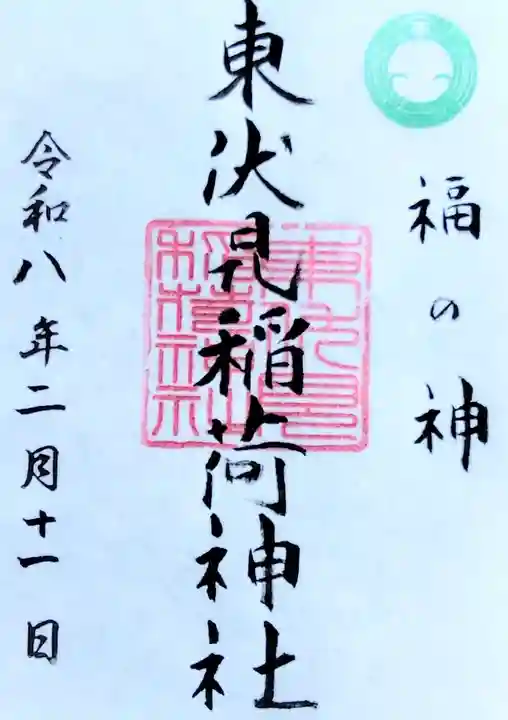 福の神
東伏見稲荷神社
令和八年二月十一日